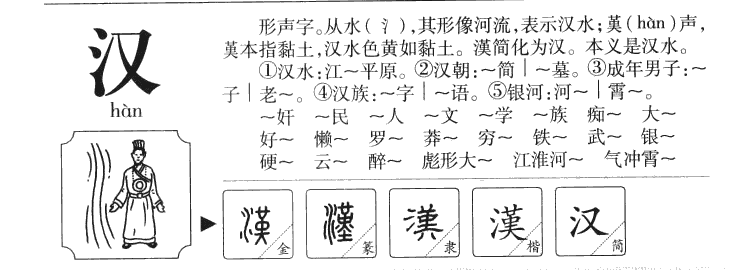 汉
hàn
形声字。从水(氵),其形像河流,表示汉水;𦰩(hàn)声,
𦰩本指黏土,汉水色黄如黏土。漢简化为汉。本义是汉水。
①汉水:江～平原。②汉朝:～简｜～墓。③成年男子:～
子｜老～。④汉族:～字｜～语。⑤银河:河～｜霄～。
～奸 ～民 ～人 ～文 ～学 ～族 痴～ 大～
好～ 懒～ 罗～ 莽～ 穷～ 铁～ 武～ 银～
硬～ 云～ 醉～ 彪形大～ 江淮河～ 气冲霄～
漢 金 漢 篆 漢 隶 漢 楷 汉 简